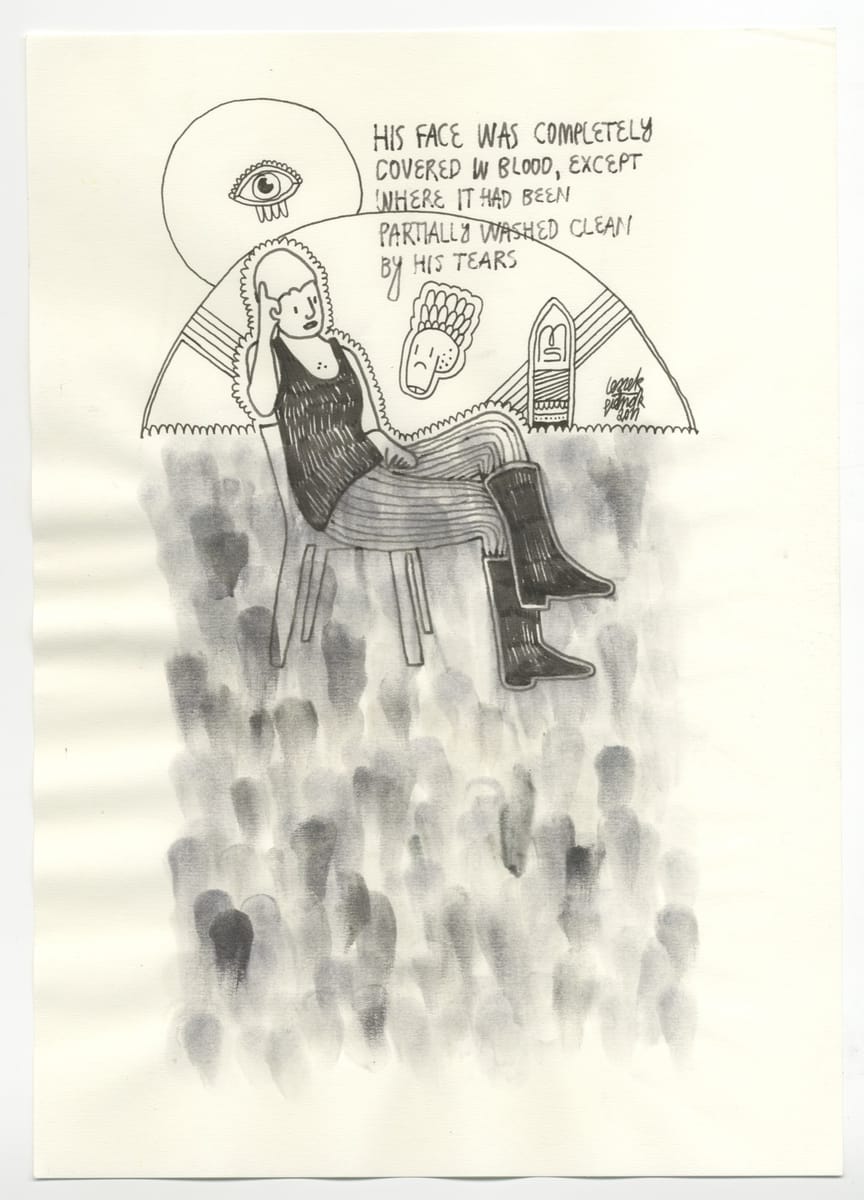 HIS FACE WAS COMPLETELY
COVERED IN BLOOD, EXCEPT
WHERE IT HAD BEEN
PARTIALLY WASHED CLEAN
BY HIS TEARS
2011